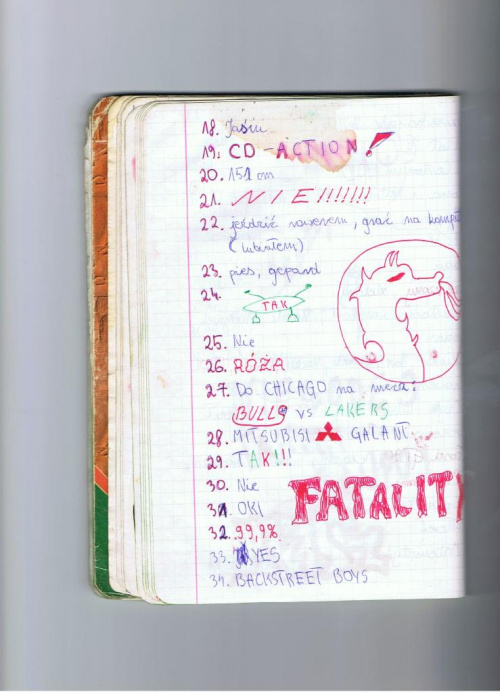 18. Jasiu
19. CD-ACTION!
20. 151 cm
21. NIE!!!!!!!
22. jeździć rowerem, grać na kompu
(lubiłem)
23. pies, gepard
24. TAK
25. Nie
26. RÓŻA
27. Do CHICAGO na mecz:
BULLS vs LAKERS
28. MITSUBISI GALANT
29. TAK!!!
30. Nie
FATALITY
31. OKI
32. 99,9%
33. YES
34. BACKSTREET BOYS